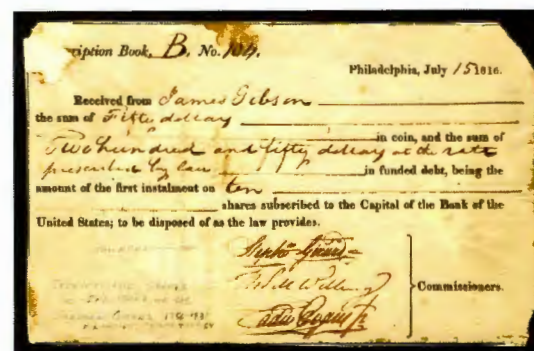 ription Book, B. No. 104.
Philadelphia, July 15 1816.
Received from James Gibson
the sum of Fifty dollars
in coin, and the sum of
Two hundred and fifty dollars at the rate
prescribed by law in funded debt, being the
amount of the first instalment on ten
shares subscribed to the Capital of the Bank of the
United States; to be disposed of as the law provides.
Steph Girard
Tho. M. Willing
Cadw Evans Jr
Commissioners.